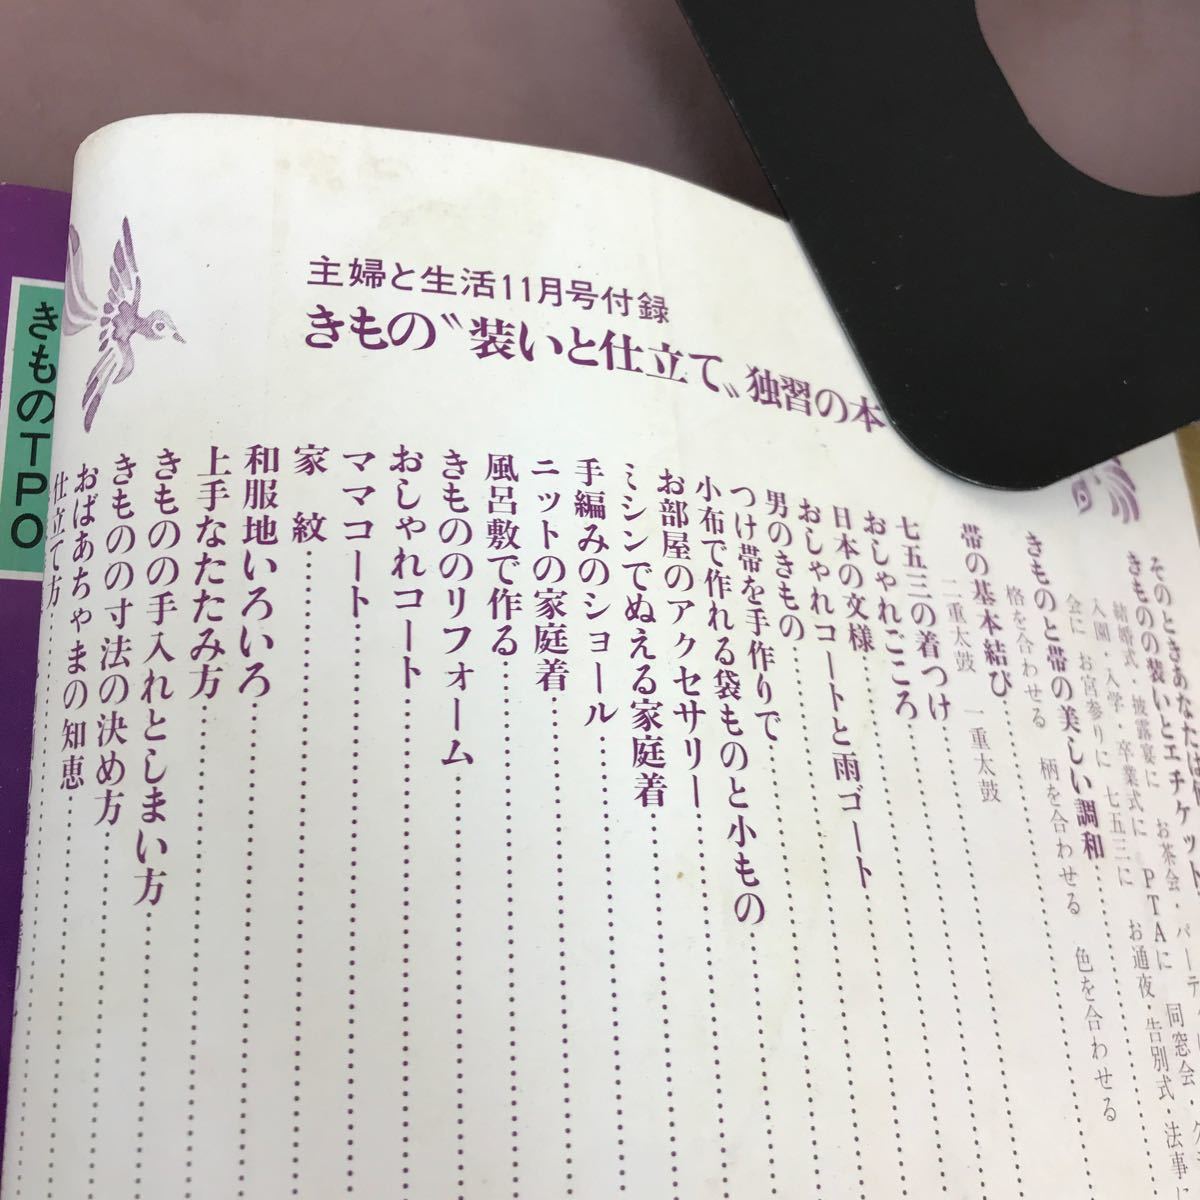 主婦と生活11月号付録
きもの〝装いと仕立て〟独習の本
そのときあなたは
きものの装いとエチケット
結婚式・披露宴に お茶会・パーティ
入園・入学・卒業式に PTAに 同窓会
会に お宮参りに 七五三に お通夜・告別式・法事に
きものと帯の美しい調和
格を合わせる 柄を合わせる 色を合わせる
帯の基本結び
二重太鼓 一重太鼓
七五三の着つけ
おしゃれごころ
日本の文様
おしゃれコートと雨ゴート
男のきもの
つけ帯を手作りで
小布で作れる袋ものと小もの
お部屋のアクセサリー
ミシンでぬえる家庭着
手編みのショール
ニットの家庭着
風呂敷で作る
きもののリフォーム
おしゃれコート
ママコート
家紋
和服地いろいろ
上手なたたみ方
きものの手入れとしまい方
きものの寸法の決め方
おばあちゃまの知恵
仕立て方
きもののTPO